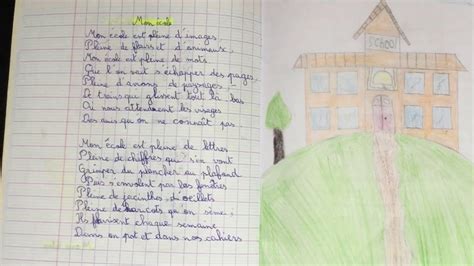 Mon école
Mon école est pleine d'images
Pleine de fleurs et d'animaux,
Mon école est pleine de mots
Que l'on voit s'échapper des pages,
Pleine d'avions, de paysages
De trains qui glissent tout là bas
Où nous attendent les visages
Des amis qu'on ne connaît pas.
Mon école est pleine de lettres
Pleine de chiffres qui s'en vont
Grimper du plancher au plafond
Puis s'envolent par les fenêtres
Pleine de jacinthes d'œillets
Pleine de haricots qu'on sème
Ils fleurissent chaque semaine
Dans un pot et dans nos cahiers
SCHOOL